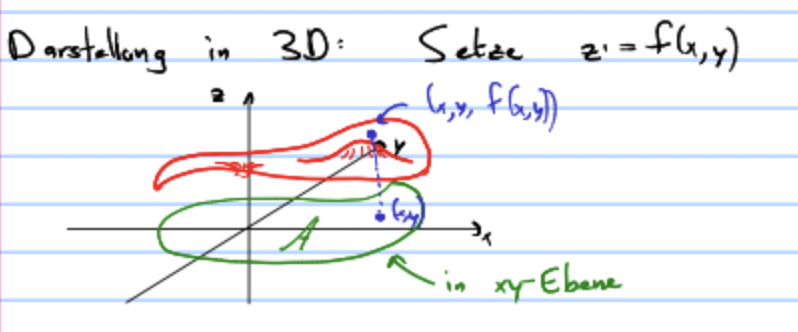 Darstellung in 3D: Setze z = f(x,y)
z
(x,y, f(x,y))
y
(x,y)
x
A
in xy-Ebene